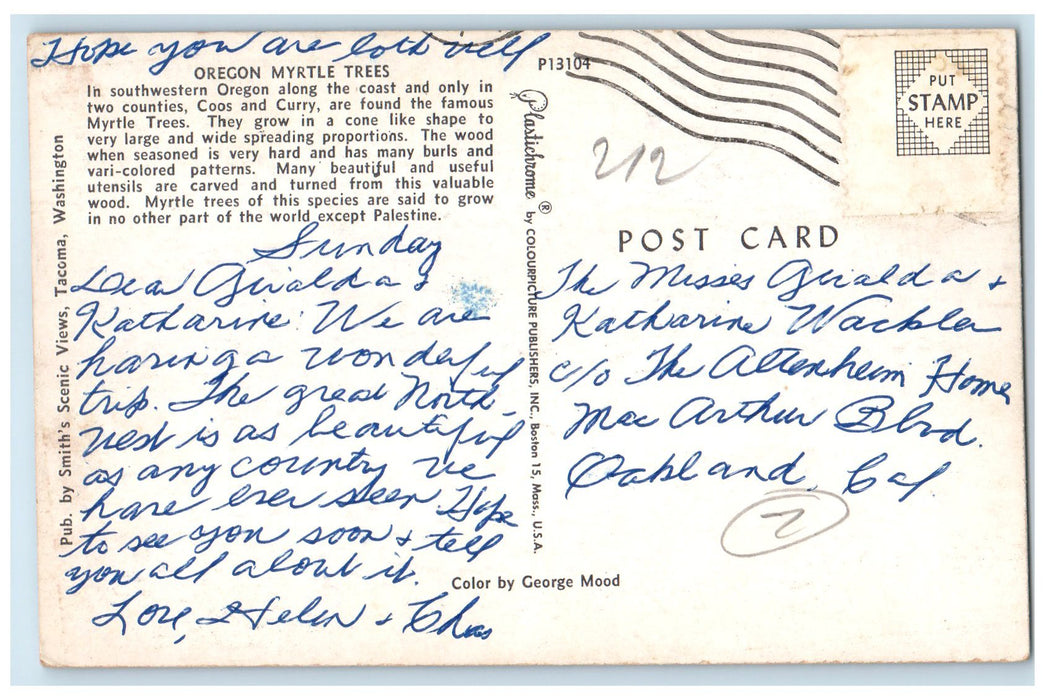 Hope you are both well
OREGON MYRTLE TREES
In southwestern Oregon along the coast and only in
two counties, Coos and Curry, are found the famous
Myrtle Trees. They grow in a cone like shape to
very large and wide spreading proportions. The wood
when seasoned is very hard and has many burls and
vari-colored patterns. Many beautiful and useful
utensils are carved and turned from this valuable
wood. Myrtle trees of this species are said to grow
in no other part of the world except Palestine.
Sunday
Dear Giralda &
Katharine: We are
having a wonderful
trip. The great North-
west is as beautiful
as any country we
have ever seen. Hope
to see you soon & tell
you all about it.
Love, Helen & Chas
Pub. by Smith's Scenic Views, Tacoma, Washington
Color by George Mood
P13104
Plastichrome ® by COLOURPICTURE PUBLISHERS, INC., Boston 15, Mass., U.S.A.
PUT
STAMP
HERE
212
POST CARD
The Misses Giralda &
Katharine
c/o The Altenheim Home
Mac Arthur Blvd.
Oakland, Cal
2